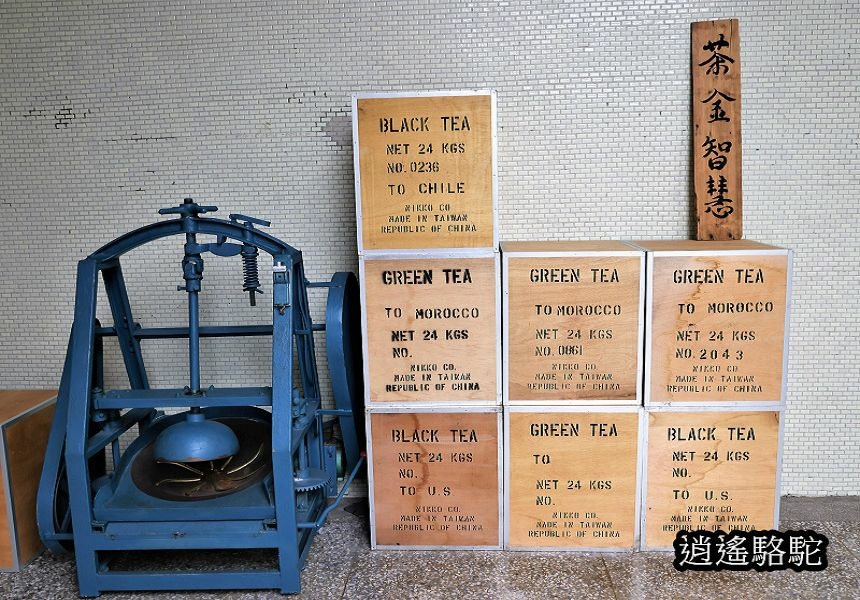 茶金智慧
BLACK TEA
NET 24 KGS
NO. 0236
TO CHILE
NIKKO CO.
MADE IN TAIWAN
REPUBLIC OF CHINA
GREEN TEA
TO MOROCCO
NET 24 KGS
NO.
NIKKO CO.
MADE IN TAIWAN
REPUBLIC OF CHINA
GREEN TEA
TO MOROCCO
NET 24 KGS
NO. 0861
NIKKO CO.
MADE IN TAIWAN
REPUBLIC OF CHINA
GREEN TEA
TO MOROCCO
NET 24 KGS
NO. 2043
NIKKO CO.
MADE IN TAIWAN
REPUBLIC OF CHINA
BLACK TEA
NET 24 KGS
NO.
TO U.S
NIKKO CO.
MADE IN TAIWAN
REPUBLIC OF CHINA
GREEN TEA
TO
NET 24 KGS
NO.
NIKKO CO.
MADE IN TAIWAN
REPUBLIC OF CHINA
BLACK TEA
NET 24 KGS
NO.
TO U.S.
NIKKO CO.
MADE IN TAIWAN
REPUBLIC OF CHINA
逍遙駱駝